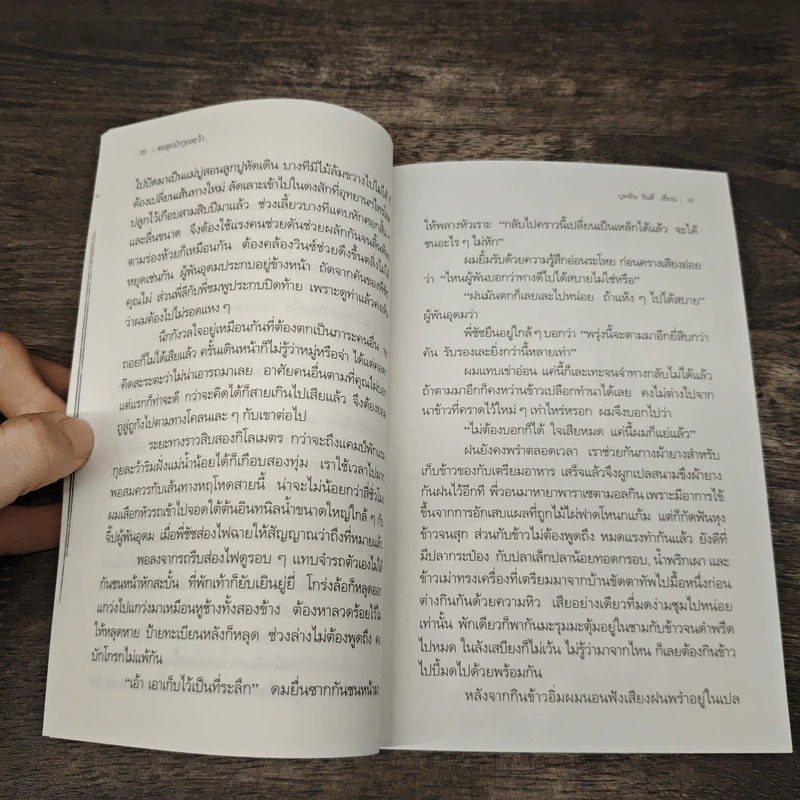 28 : ตะลุยป่ากุยละว้า
ไปปัดมาเป็นแม่ปูสอนลูกปูหัดเดิน บางทีมีไม้ล้มขวางไปไม่ได้
ต้องเปลี่ยนเส้นทางใหม่ ลัดเลาะเข้าไปในดงสักที่อุทยานฯไทรโยค
ปลูกไว้เกือบสามสิบปีมาแล้ว ช่วงเลี้ยวบางทีแคบหักศอกเส้น
และลื่นขนาด จึงต้องใช้แรงคนช่วยดันช่วยผลักกันจนลิ้นห้อย
ตามร่องห้วยก็เหมือนกัน ต้องคล้องวินช์ช่วยดึงขึ้นตลิ่งไม่ได้
หยุดเช่นกัน ผู้พันอุดมประกบอยู่ข้างหน้า ถัดจากคันของพี่ชัช
คุณไผ่ ส่วนพี่ลีกับพี่ชมพูประกบปิดท้าย เพราะดูท่าแล้วคง
ว่าผมต้องไปไม่รอดแหง ๆ
นึกกังวลใจอยู่เหมือนกันที่ต้องตกเป็นภาระคนอื่น จะ
ถอยก็ไม่ได้เสียแล้ว ครั้นเดินหน้าก็ไม่รู้ว่าหมู่หรือจ่า ได้แต่
คิดสะระตะว่าไม่น่าเอารถมาเลย อาศัยคนอื่นตามที่คุณไผ่บอก
แต่แรกก็ท่าจะดี กว่าจะคิดได้ก็สายเกินไปเสียแล้ว จึงต้องยอม
ถูลู่ถูกังไปตามทางโคลนเละ ๆ กับเขาต่อไป
ระยะทางราวสิบสองกิโลเมตร กว่าจะถึงแคมป์พักแรม
กุยละว้าริมฝั่งแม่น้ำน้อยได้ก็เกือบสองทุ่ม เราใช้เวลาไปมาก
พอสมควรกับเส้นทางหฤโหดสายนี้ น่าจะไม่น้อยกว่าสี่ชั่วโมง
ผมเสือกหัวรถเข้าไปจอดใต้ต้นอินทนิลน้ำขนาดใหญ่ใกล้ ๆ กับ
จี๊ปผู้พันอุดม เมื่อพี่ชัชส่องไฟฉายให้สัญญาณว่าถึงที่หมายแล้ว
พอลงจากรถรีบส่องไฟดูรอบ ๆ แทบจำรถตัวเองไม่ได้
กันชนหน้าหักสะบั้น ที่พักเท้าก็ยับเยินยู่ยี่ โกร่งล้อก็หลุดออก
แกว่งไปแกว่งมาเหมือนหูช้างทั้งสองข้าง ต้องหาลวดร้อยไว้ไม่
ให้หลุดหาย ป้ายทะเบียนหลังก็หลุด ช่วงล่างไม่ต้องพูดถึง คง
บักโกรกไม่แพ้กัน
“เอ้า เอาเก็บไว้เป็นที่ระลึก” ดมยื่นซากกันชนหน้ามา
บุหลัน รันตี เขียน : 29
ให้พลางหัวเราะ “กลับไปคราวนี้เปลี่ยนเป็นเหล็กได้แล้ว จะได้
ชนอะไร ๆ ไม่หัก”
ผมยิ้มรับด้วยความรู้สึกอ่อนระโหย ก่อนครางเสียงอ่อย
ว่า “ไหนผู้พันบอกว่าทางดีไปได้สบายไม่ใช่หรือ”
“ฝนมันตกก็เลยเละไปหน่อย ถ้าแห้ง ๆ ไปได้สบาย”
ผู้พันอุดมว่า
พี่ชัชยืนอยู่ใกล้ ๆ บอกว่า “พรุ่งนี้จะตามมาอีกยี่สิบกว่า
คัน รับรองเละยิ่งกว่านี้หลายเท่า”
ผมแทบเข่าอ่อน แค่นี้ก็เละเทะจนจำทางกลับไม่ได้แล้ว
ถ้าตามมาอีกก็คงหว่านข้าวเปลือกทำนาได้เลย คงไม่ต่างไปจาก
นาข้าวที่คราดไว้ใหม่ ๆ เท่าไหร่หรอก ผมจึงบอกไปว่า
“ไม่ต้องบอกก็ได้ ใจเสียหมด แค่นี้ผมก็แย่แล้ว”
ฝนยังคงพรำตลอดเวลา เราช่วยกันกางผ้ายางสำหรับ
เก็บข้าวของกับเตรียมอาหาร เสร็จแล้วจึงผูกเปลสนามขึงผ้ายาง
กันฝนไว้อีกที พี่วอนมาหายาพาราเซตามอลกิน เพราะมีอาการไข้
ขึ้นจากการอักเสบแผลที่ถูกไม้ไผ่ฟาดโหนกแก้ม แต่ก็กัดฟันหุง
ข้าวจนสุก ส่วนกับข้าวไม่ต้องพูดถึง หมดแรงทำกันแล้ว ยังดีที่
มีปลากระป๋อง กับปลาเล็กปลาน้อยทอดกรอบ, น้ำพริกเผา และ
ข้าวเม่าทรงเครื่องที่เตรียมมาจากบ้านขัดตาทัพไปมื้อหนึ่งก่อน
ต่างกินกันด้วยความหิว เสียอย่างเดียวที่มดง่ามชุมไปหน่อย
เท่านั้น พักเดียวก็พากันมะรุมมะตุ้มอยู่ในชามกับข้าวจนดำพรืด
ไปหมด ในลังเสบียงก็ไม่เว้น ไม่รู้ว่ามาจากไหน ก็เลยต้องกินข้าว
ไปบี้มดไปด้วยพร้อมกัน
หลังจากกินข้าวอิ่มผมนอนฟังเสียงฝนพรำอยู่ในเปล